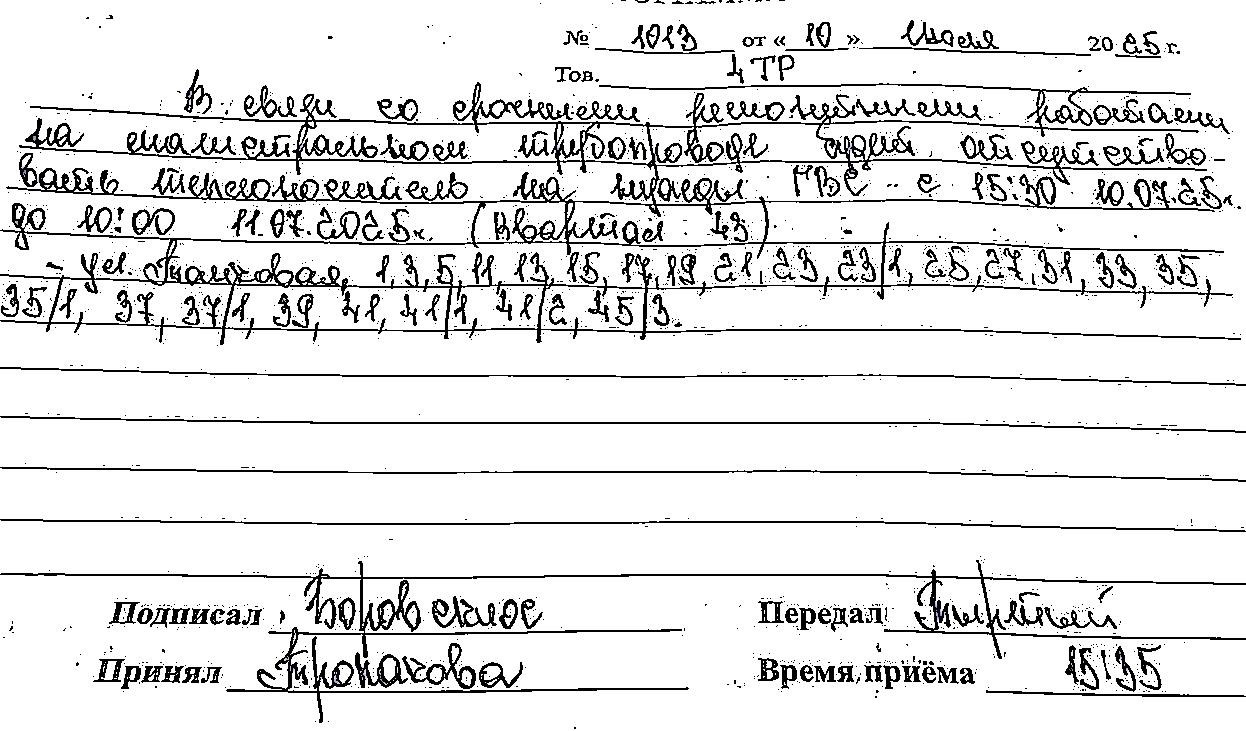 № 1013 от « 10 » Июля 2025 г.
Тов. 4 ТР
В связи со срочными ремонтными работами
на магистральном трубопроводе будет отсутство-
вать теплоноситель на нужды ГВС с 15:30 10.07.25г.
до 10:00 11.07.2025г. (Квартал 43)
- ул. 1, 3, 5, 11, 13, 15, 17, 19, 21, 23, 23/1, 25, 27, 31, 33, 35,
35/1, 37, 37/1, 39, 41, 41/1, 41/2, 45/3.
Подписал Передал
Принял Время приёма 15:35